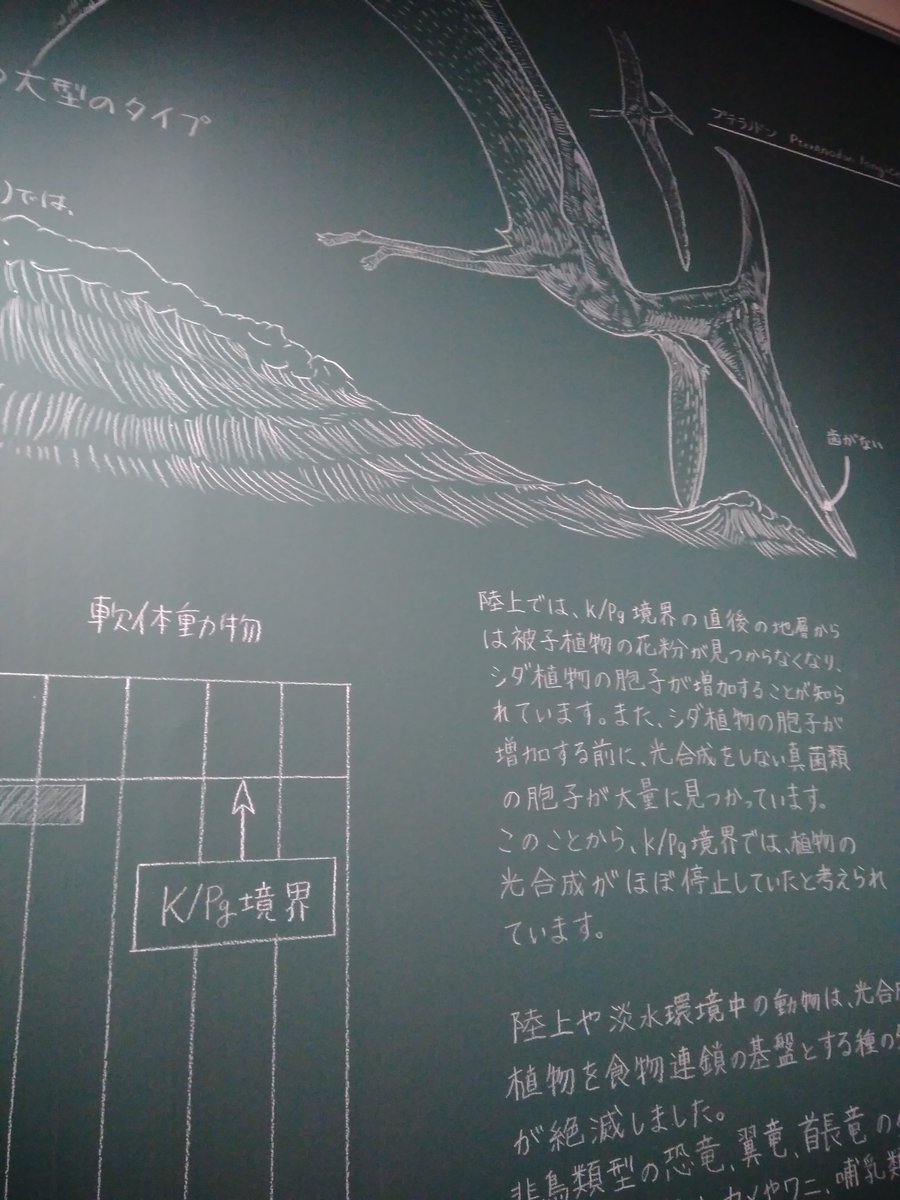 大型のタイプ
では、
プテラノドン Pteranodon
歯がない
軟体動物
K/Pg境界
陸上では、K/Pg境界の直後の地層から
は被子植物の花粉が見つからなくなり、
シダ植物の胞子が増加することが知ら
れています。また、シダ植物の胞子が
増加する前に、光合成をしない真菌類
の胞子が大量に見つかっています。
このことから、K/Pg境界では、植物の
光合成がほぼ停止していたと考えられ
ています。
陸上や淡水環境中の動物は、光合
植物を食物連鎖の基盤とする種の
が絶滅しました。
非鳥類型の恐竜、翼竜、首長竜の
やワニ、哺乳類